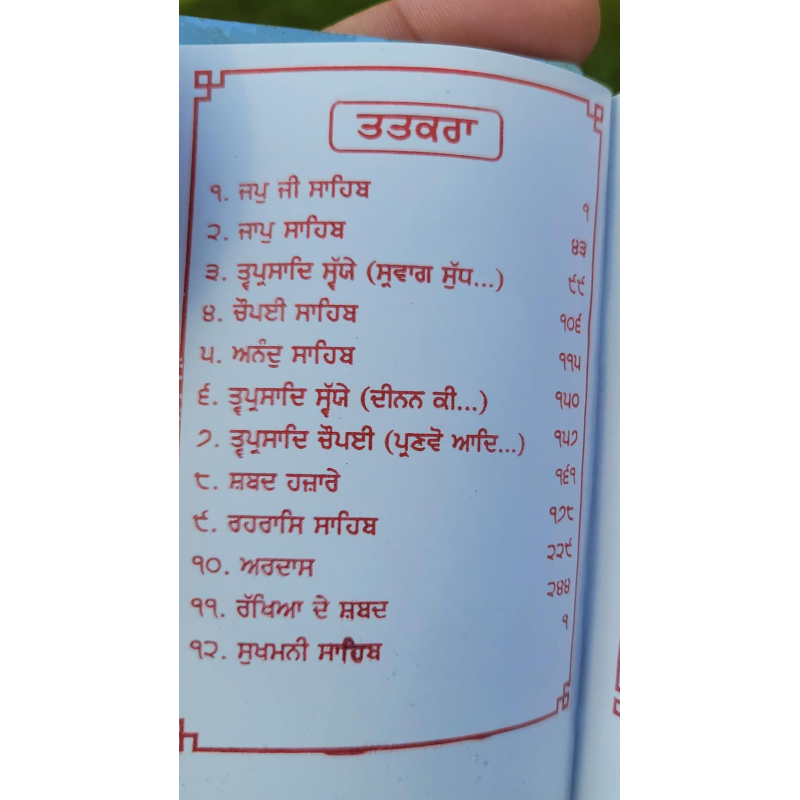 ਤਤਕਰਾ
੧. ਜਪੁ ਜੀ ਸਾਹਿਬ ੧
੨. ਜਾਪੁ ਸਾਹਿਬ ੪੩
੩. ਤ੍ਵਪ੍ਰਸਾਦਿ ਸ੍ਵੱਯੇ (ਸ੍ਰਵਾਗ ਸੁੱਧ...) ੯੯
੪. ਚੌਪਈ ਸਾਹਿਬ ੧੦੬
੫. ਅਨੰਦੁ ਸਾਹਿਬ ੧੧੫
੬. ਤ੍ਵਪ੍ਰਸਾਦਿ ਸ੍ਵੱਯੇ (ਦੀਨਨ ਕੀ...) ੧੫੦
੭. ਤ੍ਵਪ੍ਰਸਾਦਿ ਚੌਪਈ (ਪ੍ਰਣਵੋ ਆਦਿ...) ੧੫੭
੮. ਸ਼ਬਦ ਹਜ਼ਾਰੇ ੧੬੧
੯. ਰਹਰਾਸਿ ਸਾਹਿਬ ੧੭੮
੧੦. ਅਰਦਾਸ ੨੨੯
੧੧. ਰੱਖਿਆ ਦੇ ਸ਼ਬਦ ੨੪੪
੧੨. ਸੁਖਮਨੀ ਸਾਹਿਬ ੧